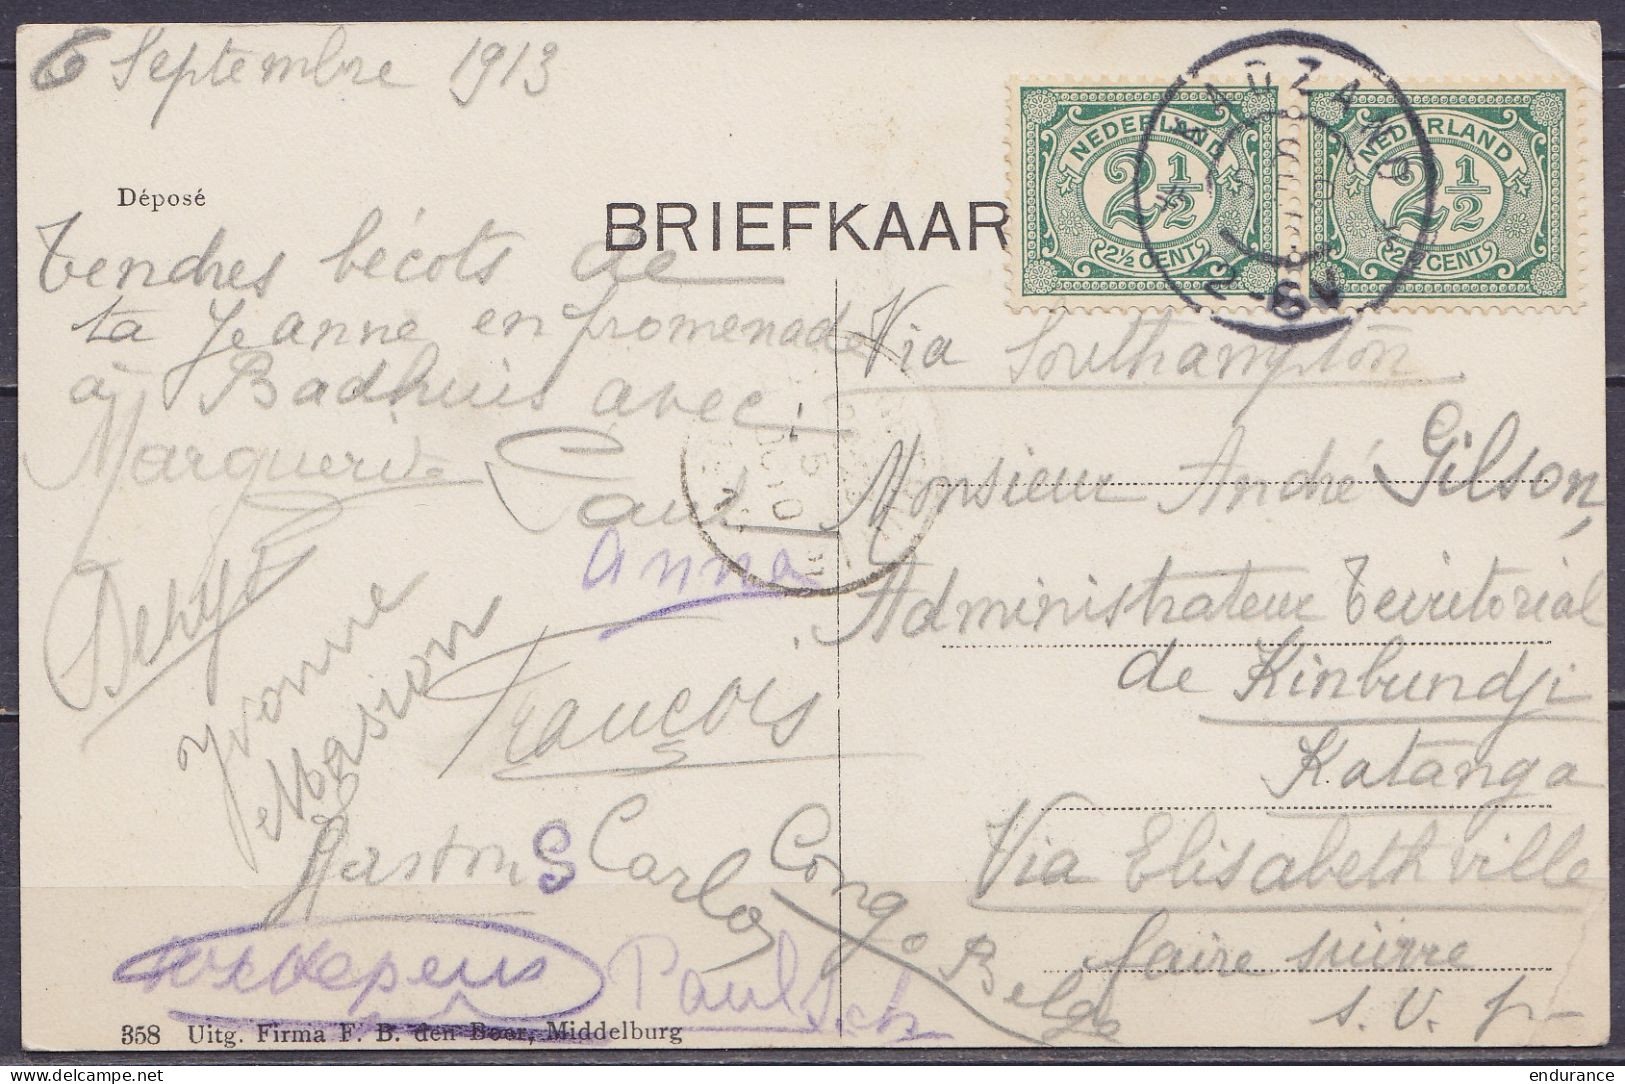 6 Septembre 1913
Déposé
BRIEFKAAR
NEDERLAND
2½
2½ CENT
NEDERLAND
2½
2½ CENT
Tendres bécots de
ta Jeanne en promenade
à Badhuis avec
Marguerite Paul
Anna
Yvonne
Masion
François
Gaston S Carlos
Paul Sch
Via Southampton
Monsieur André Gilson,
Administrateur Territorial
de Kinbundji
Katanga
Via Elisabethville
Congo Belge
faire suivre
s. V. p
358 Uitg. Firma F. B. den Boer, Middelburg
www.delcampe.net
endurance